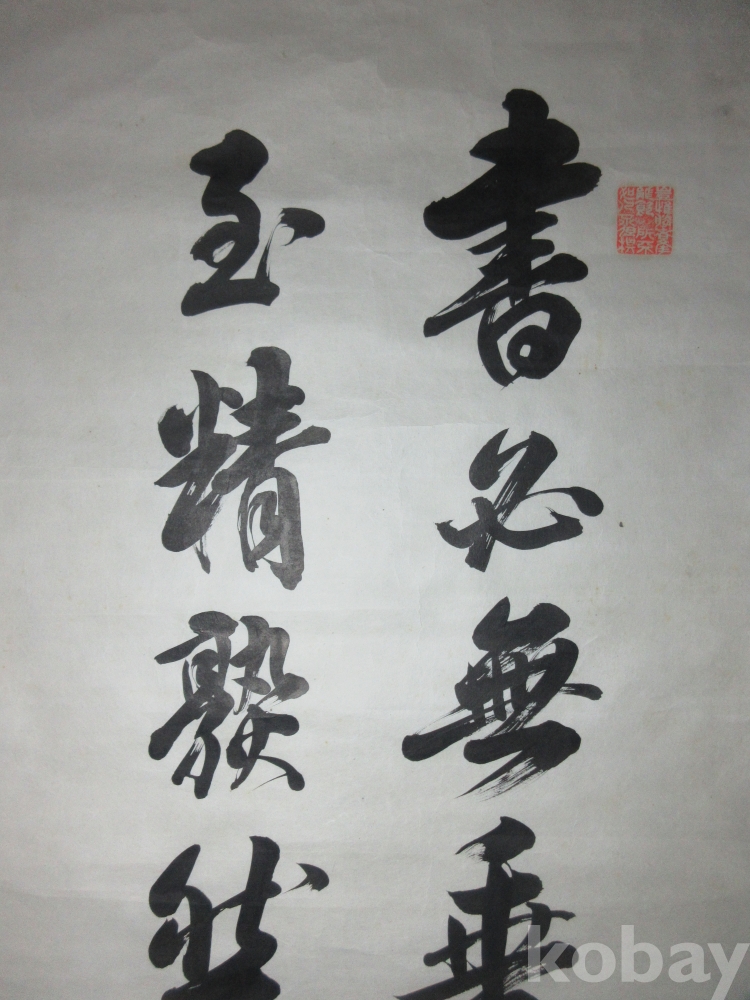 書必無垂
至精熟然
kobay